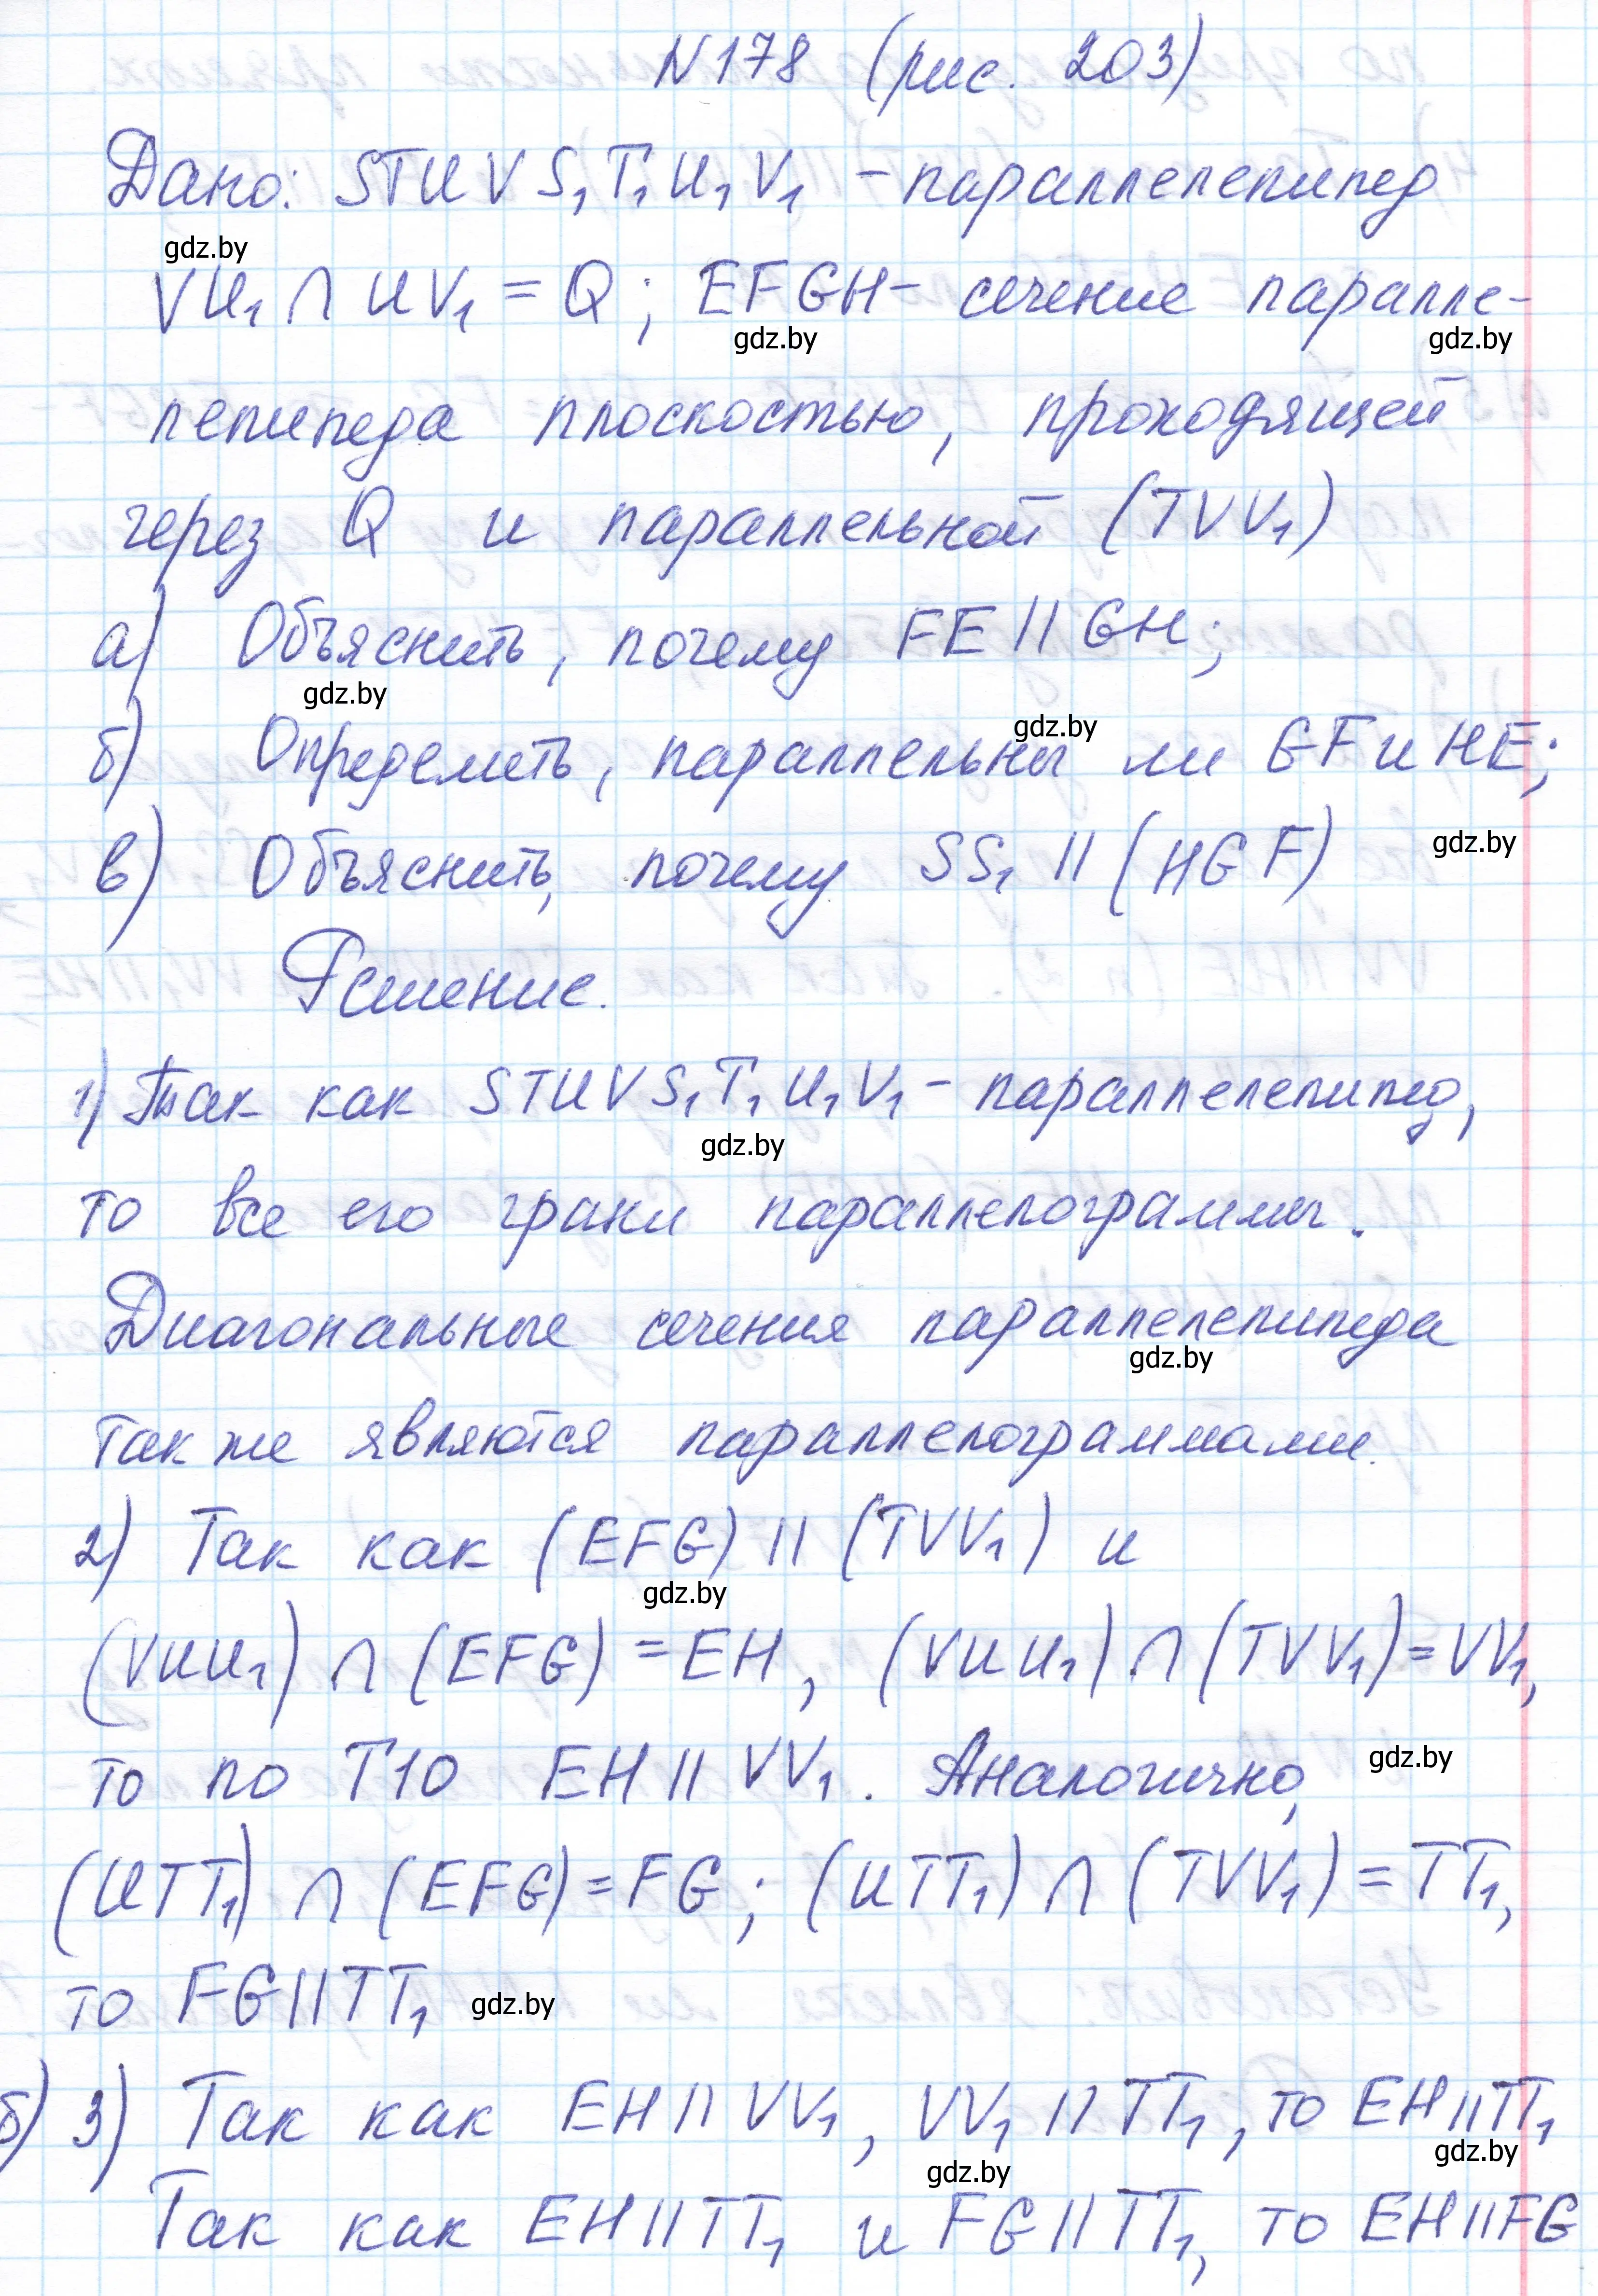 N178 (рис. 203)
Дано: STUVS₁T₁U₁V₁ - параллелепипед
gdz.by
VU₁ ∩ UV₁ = Q; EFGH - сечение паралле-
gdz.by gdz.by
лепипеда плоскостью, проходящей
через Q и параллельной (TVV₁)
а) Объяснить, почему FE || GH;
gdz.by
gdz.by
б) Определить, параллельны ли GF и HE;
в) Объяснить, почему SS₁ || (HGF)
gdz.by
Решение.
1) Так как STUVS₁T₁U₁V₁ - параллелепипед,
gdz.by
то все его грани параллелограммы.
Диагональные сечения параллелепипеда
gdz.by
так же являются параллелограммами.
2) Так как (EFG) || (TVV₁) и
gdz.by
(VUU₁) ∩ (EFG) = EH, (VUU₁) ∩ (TVV₁) = VV₁,
то по Т10 EH || VV₁. Аналогично,
gdz.by
(UTT₁) ∩ (EFG) = FG; (UTT₁) ∩ (TVV₁) = TT₁,
то FG || TT₁
gdz.by
б) 3) Так как EH || VV₁, VV₁ || TT₁, то EH || TT₁
gdz.by gdz.by
Так как EH || TT₁ и FG || TT₁, то EH || FG